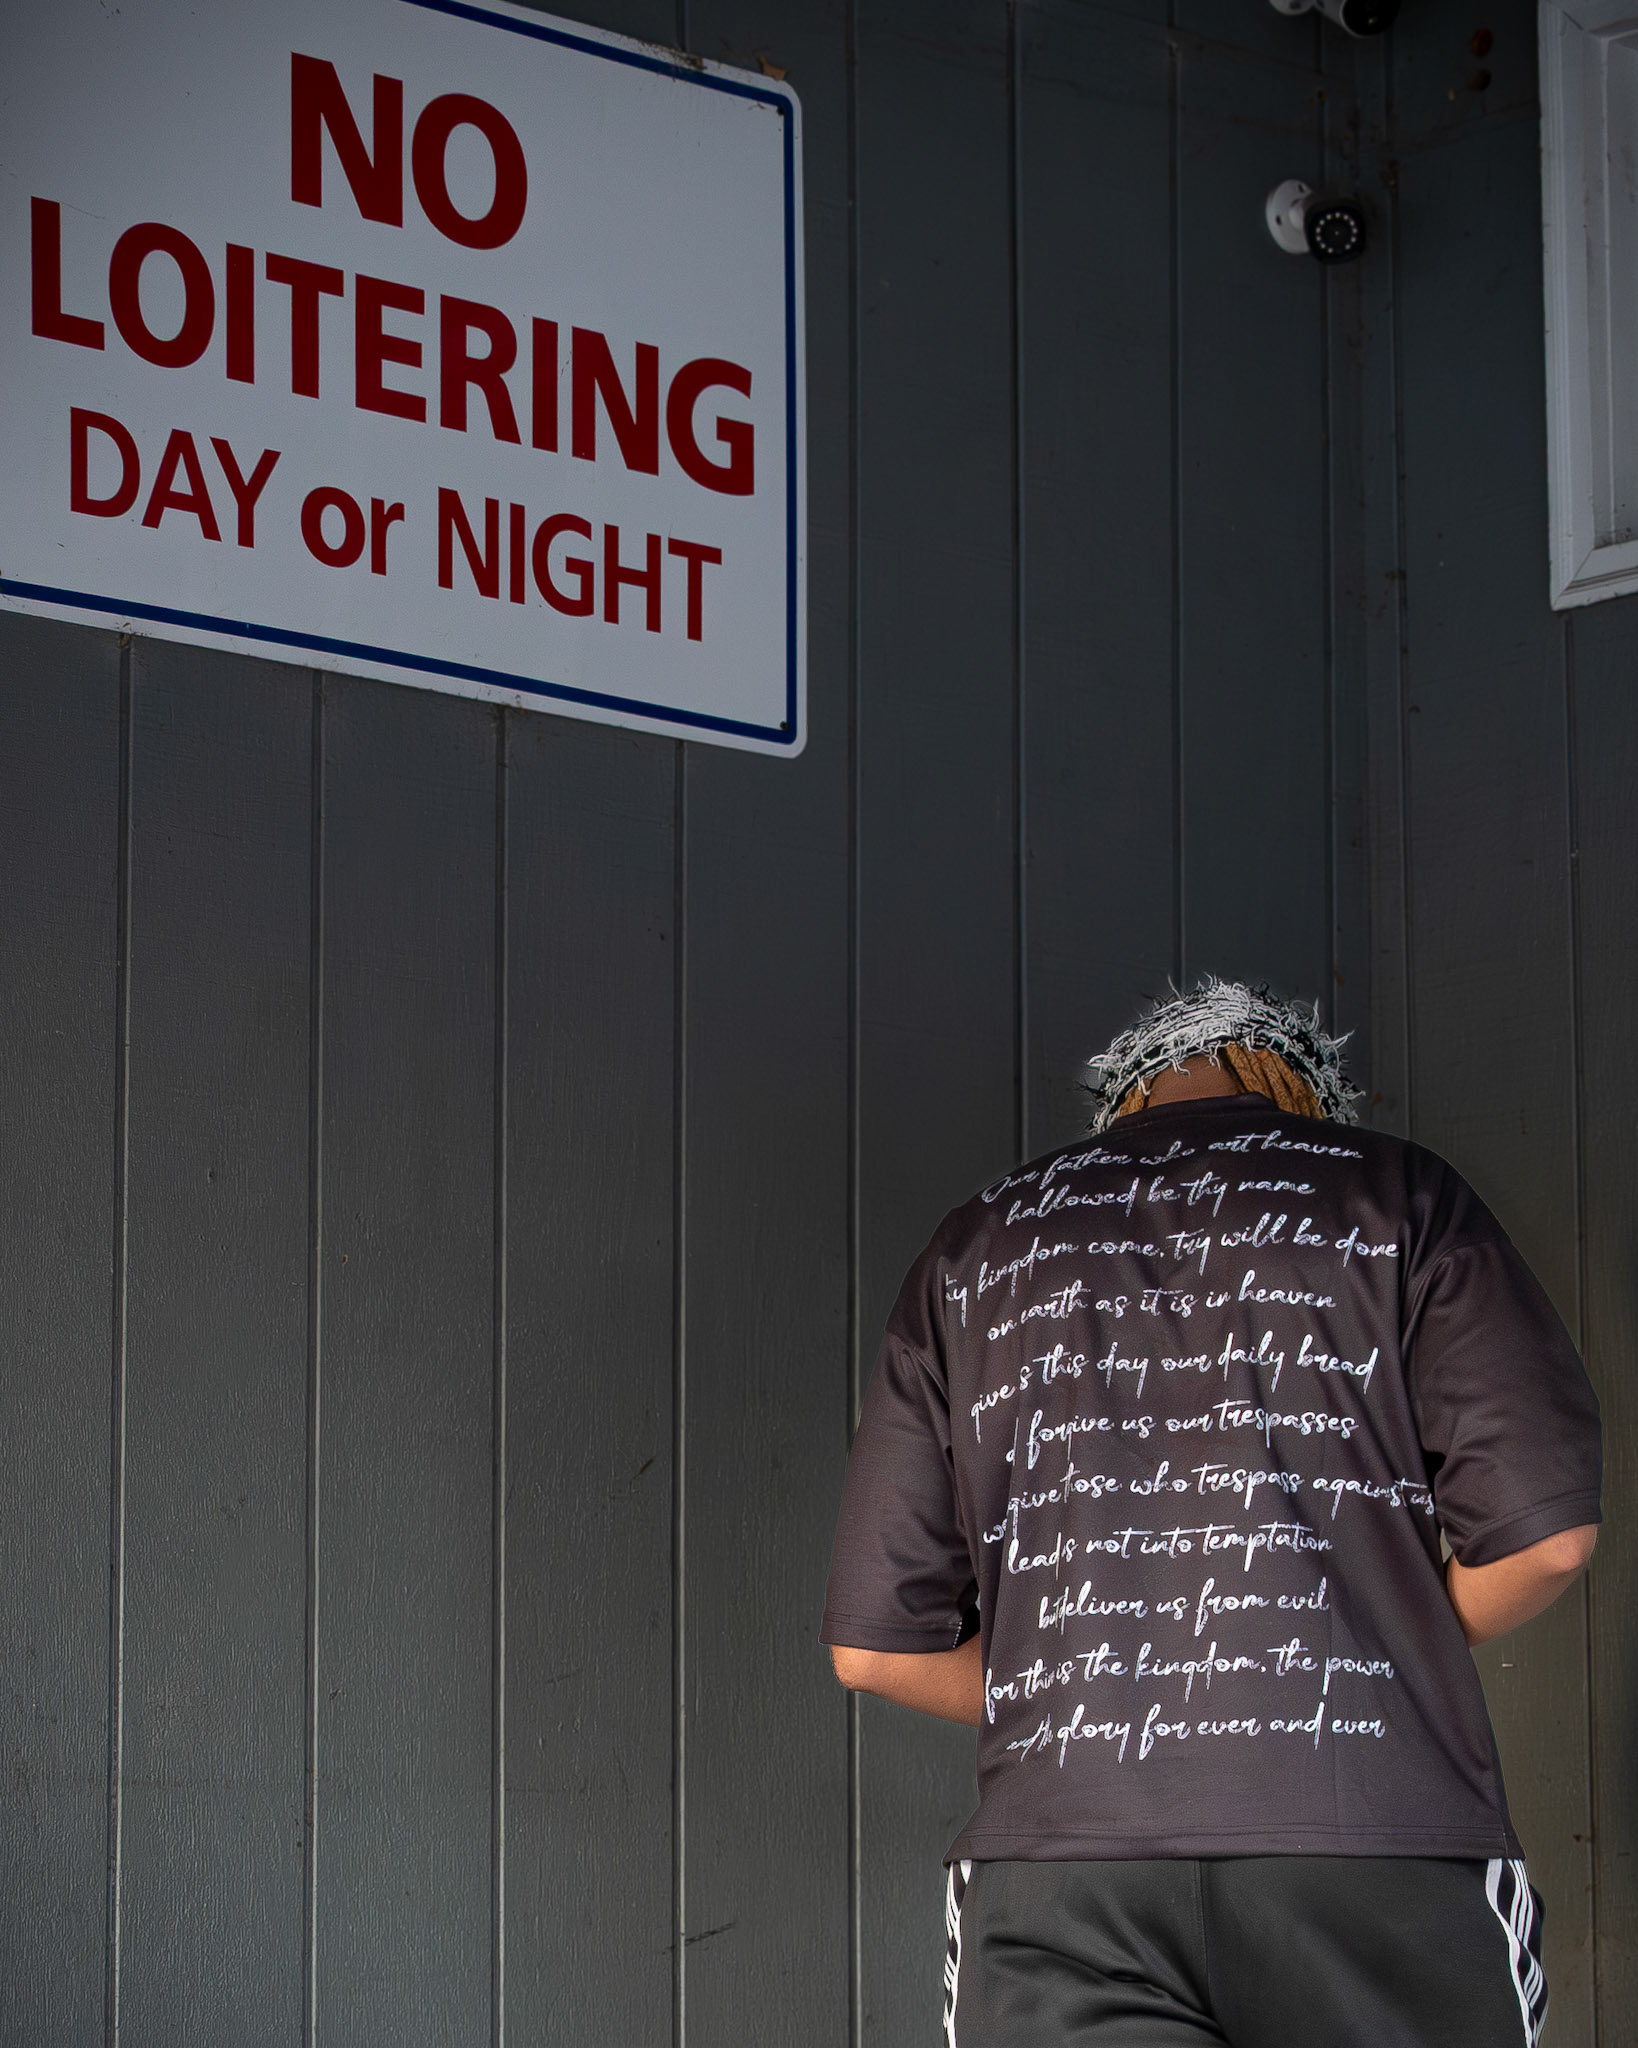 NO
LOITERING
DAY or NIGHT
Our father who art heaven
hallowed be thy name
hy kingdom come. try will be done
on earth as it is in heaven
give s this day our daily bread
d forgive us our trespasses
we give those who trespass against us
lead s not into temptation
but deliver us from evil
for thine is the kingdom. the power
glory for ever and ever